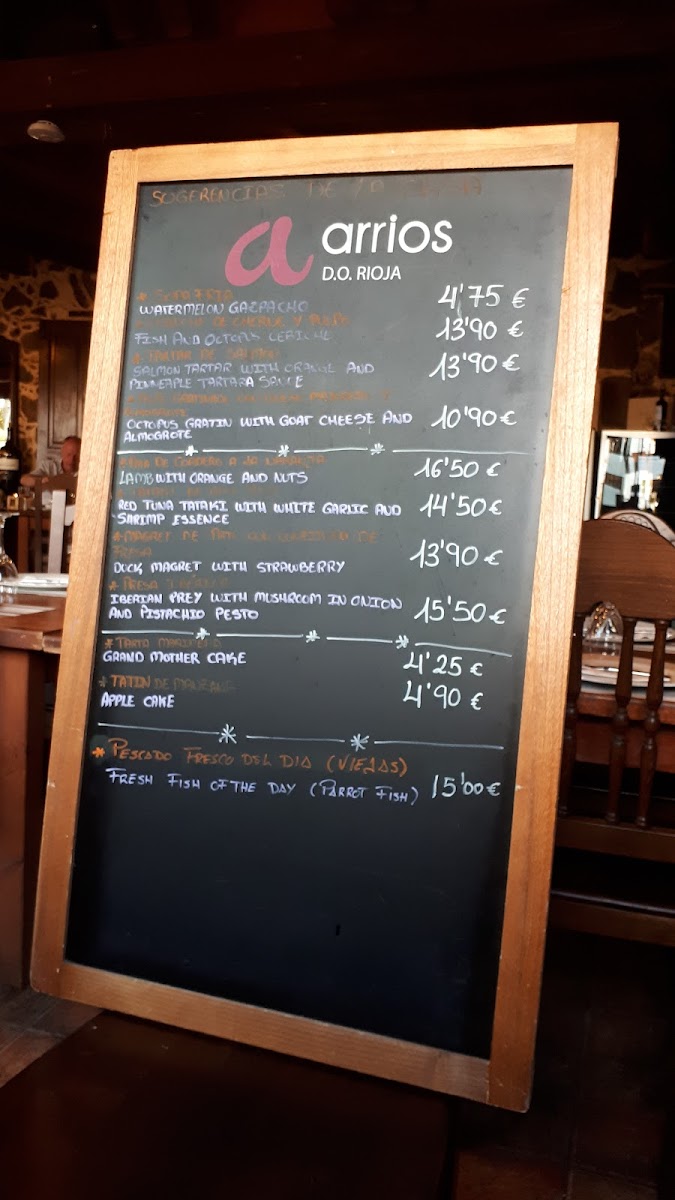 SUGERENCIAS DE LA
a arrios
D.O. RIOJA
* SOPA FRIA
WATERMELON GAZPACHO 4'75 €
DE CHERNE Y PULPO
FISH AND OCTOPUS CEBICHE 13'90 €
* TARTAR DE SALMON
SALMON TARTAR WITH ORANGE AND 13'90 €
PINNEAPLE TARTARA SAUCE
OCTOPUS GRATIN WITH GOAT CHEESE AND 10'90 €
ALMOGROTE
DE CORDERO A LA NARANJA
LAMB WITH ORANGE AND NUTS 16'50 €
RED TUNA TATAKI WITH WHITE GARLIC AND 14'50 €
SHRIMP ESSENCE
* MAGRET DE PATO CON DE
FRESA
DUCK MAGRET WITH STRAWBERRY 13'90 €
* PRESA
IBERIAN PREY WITH MUSHROOM IN ONION 15'50 €
AND PISTACHIO PESTO
* TARTA
GRAND MOTHER CAKE 4'25 €
* TATIN DE MANZANA
APPLE CAKE 4'90 €
* PESCADO FRESCO DEL DIA (VIEJAS)
FRESH FISH OF THE DAY (PARROT FISH) 15'00 €